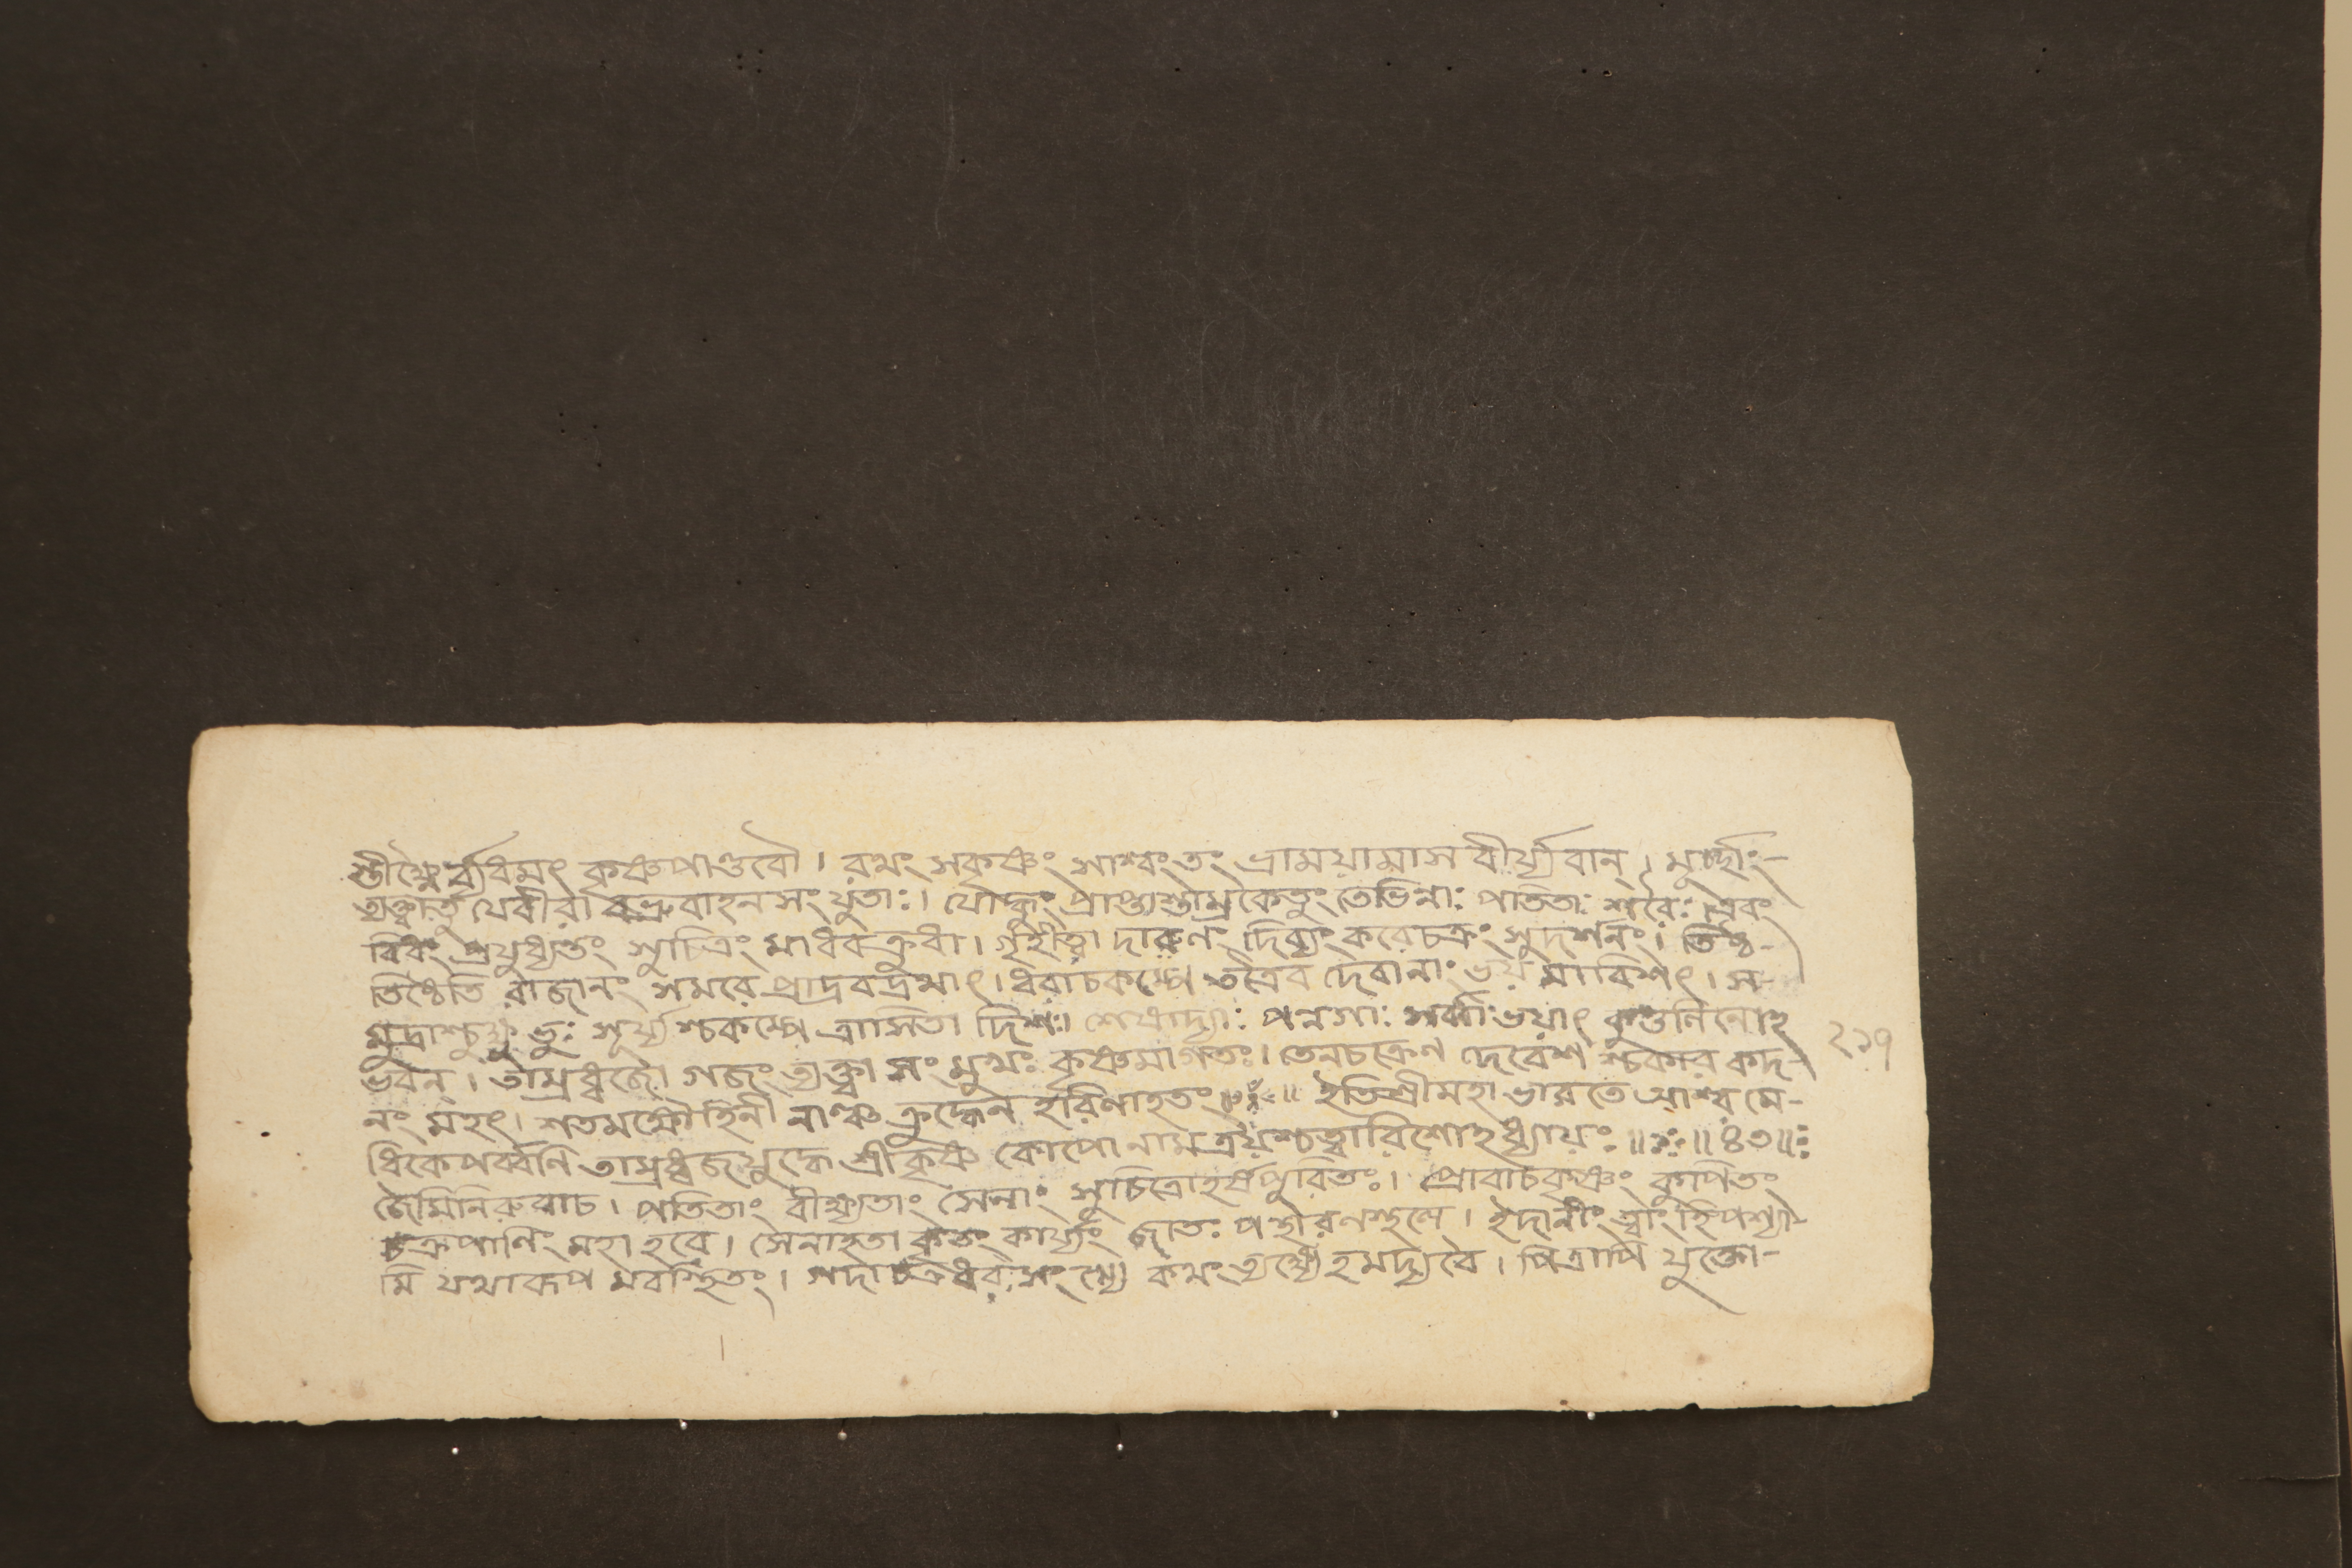 স্তীক্ষ্ণৈর্ব্যধমৎ কৃষ্ণপাণ্ডবৌ। রথং সকৃষ্ণং সাশ্বংতং ভ্রাময়ামাস বীর্য্যবান্। মূর্চ্ছাং-
ত্যক্ত্বাতু যেবীরা বভ্রুবাহনসংযুতাঃ। যোদ্ধুং প্রাপ্তাস্তাম্রকেতুং তেভিন্নাঃ পতিতাঃ শরৈঃ। এবং
বিধং প্রযুধ্যন্তং সুচিত্রং মাধবক্রুধা। গৃহীত্বা দারুণং দিব্যং করেচক্রং সুদর্শনং। তিষ্ঠ-
তিষ্ঠেতি রাজানং সমরে প্রাদ্রবদ্রথাৎ। ধরাচকম্পে তত্রৈব দেবানাং ভয় মাবিশৎ। স-
মুদ্রাশ্চুক্ষুভুঃ সূর্য্যশ্চকম্পে ত্রাসিতা দিশঃ। শেষাদ্যাঃ পন্নগাঃ সর্ব্বে ভয়াৎ কুণ্ডলিনোঽ
ভবন্। তাম্রধ্বজো গজং ত্যক্ত্বা সংমুখঃ কৃষ্ণমাগতঃ। তেনচক্রেণ দেবেশ শ্চকার কদ-
নং মহৎ। শতমক্ষৌহিনী নাঞ্চ ক্রুদ্ধেন হরিণাহতং॥ঃ॥ ইতিশ্রীমহাভারতে আশ্বমে-
ধিকেপর্ব্বণি তাম্রধ্বজযুদ্ধে শ্রীকৃষ্ণ কোপো নামত্রয়শ্চত্বারিংশোঽধ্যায়ঃ॥ঃ॥৪৩॥ঃ
জৈমিনিরুবাচ। পতিতাং বীক্ষ্যতাং সেনাং সুচিত্রোহর্ষপুরিতঃ। প্রোবাচকৃষ্ণং কুপিতং
চক্রপাণিং মহাহবে। সেনাহতা কৃতং কার্য্যং জাতঃ পন্থারণস্থলে। ইদানীং ত্বাং হিপশ্যা-
মি যথারূপ মবস্থিতং। গদাচক্রধরং সংখ্যে কথং ত্যক্ষ্যেঽমদ্যবৈ। পিত্রাপি যুক্তো-
২১৭